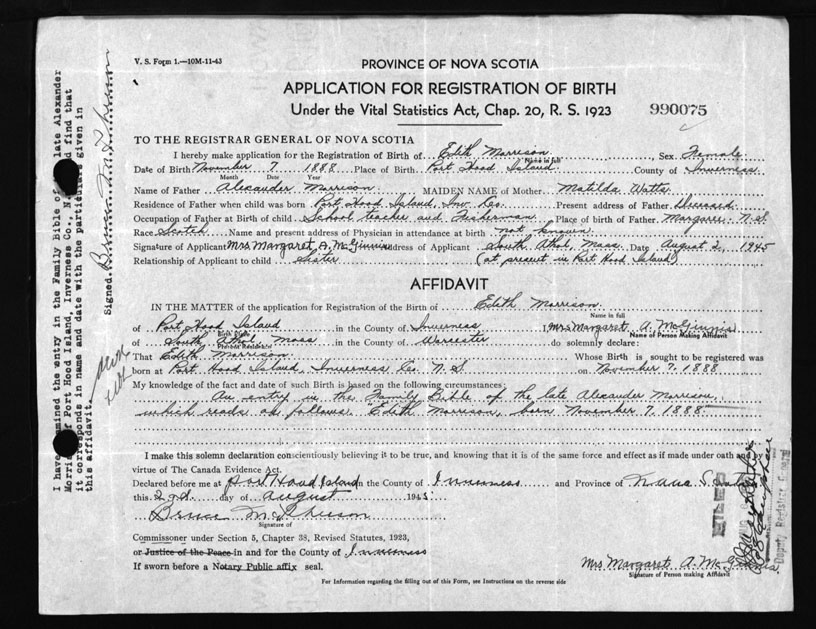 V. S. Form 1.—10M-11-43
PROVINCE OF NOVA SCOTIA
APPLICATION FOR REGISTRATION OF BIRTH
Under the Vital Statistics Act, Chap. 20, R. S. 1923
990075
TO THE REGISTRAR GENERAL OF NOVA SCOTIA
I hereby make application for the Registration of Birth of Edith Morrison, Sex Female
Name in full
Date of Birth November 7 1888 Place of Birth Port Hood Island County of Inverness
Month Date Year
Name of Father Alexander Morrison MAIDEN NAME of Mother Matilda Watts
Residence of Father when child was born Port Hood Island, Inv. Co. Present address of Father Deceased
Occupation of Father at Birth of child School teacher and Fisherman Place of birth of Father Margaree N.S.
Race Scotch Name and present address of Physician in attendance at birth not known
Signature of Applicant Mrs Margaret A. McGinnis Address of Applicant South Athol, Mass. Date August 2, 1945
Relationship of Applicant to child Sister (at present in Port Hood Island)
AFFIDAVIT
IN THE MATTER of the application for Registration of the Birth of Edith Morrison
Name in full
of Port Hood Island in the County of Inverness I, Mrs Margaret A. McGinnis
Birth Place
Name of Person Making Affidavit
of South Athol Mass in the County of Worcester do solemnly declare:
Present Residence
That Edith Morrison Whose Birth is sought to be registered was
born at Port Hood Island, Inverness Co. N.S. on November 7, 1888
My knowledge of the fact and date of such Birth is based on the following circumstances:
An entry in the Family Bible of the late Alexander Morrison,
which reads as follows "Edith Morrison, born November 7, 1888
I make this solemn declaration conscientiously believing it to be true, and knowing that it is of the same force and effect as if made under oath and by
virtue of The Canada Evidence Act.
Declared before me at Port Hood Island in the County of Inverness and Province of Nova Scotia
this 2nd day of August 1945
Bruce McPherson
Signature of
Commissioner under Section 5, Chapter 38, Revised Statutes, 1923,
or Justice of the Peace in and for the County of Inverness
If sworn before a Notary Public affix seal.
Mrs Margaret A. McGinnis
Signature of Person making Affidavit
For Information regarding the filling out of this Form, see Instructions on the reverse side
I have examined the entry in the Family Bible of the late Alexander
Morrison of Port Hood Island, Inverness Co. N. and find that
it corresponds in name and date with the particulars given in
this affidavit.
Signed
FILED
Deputy Registrar General